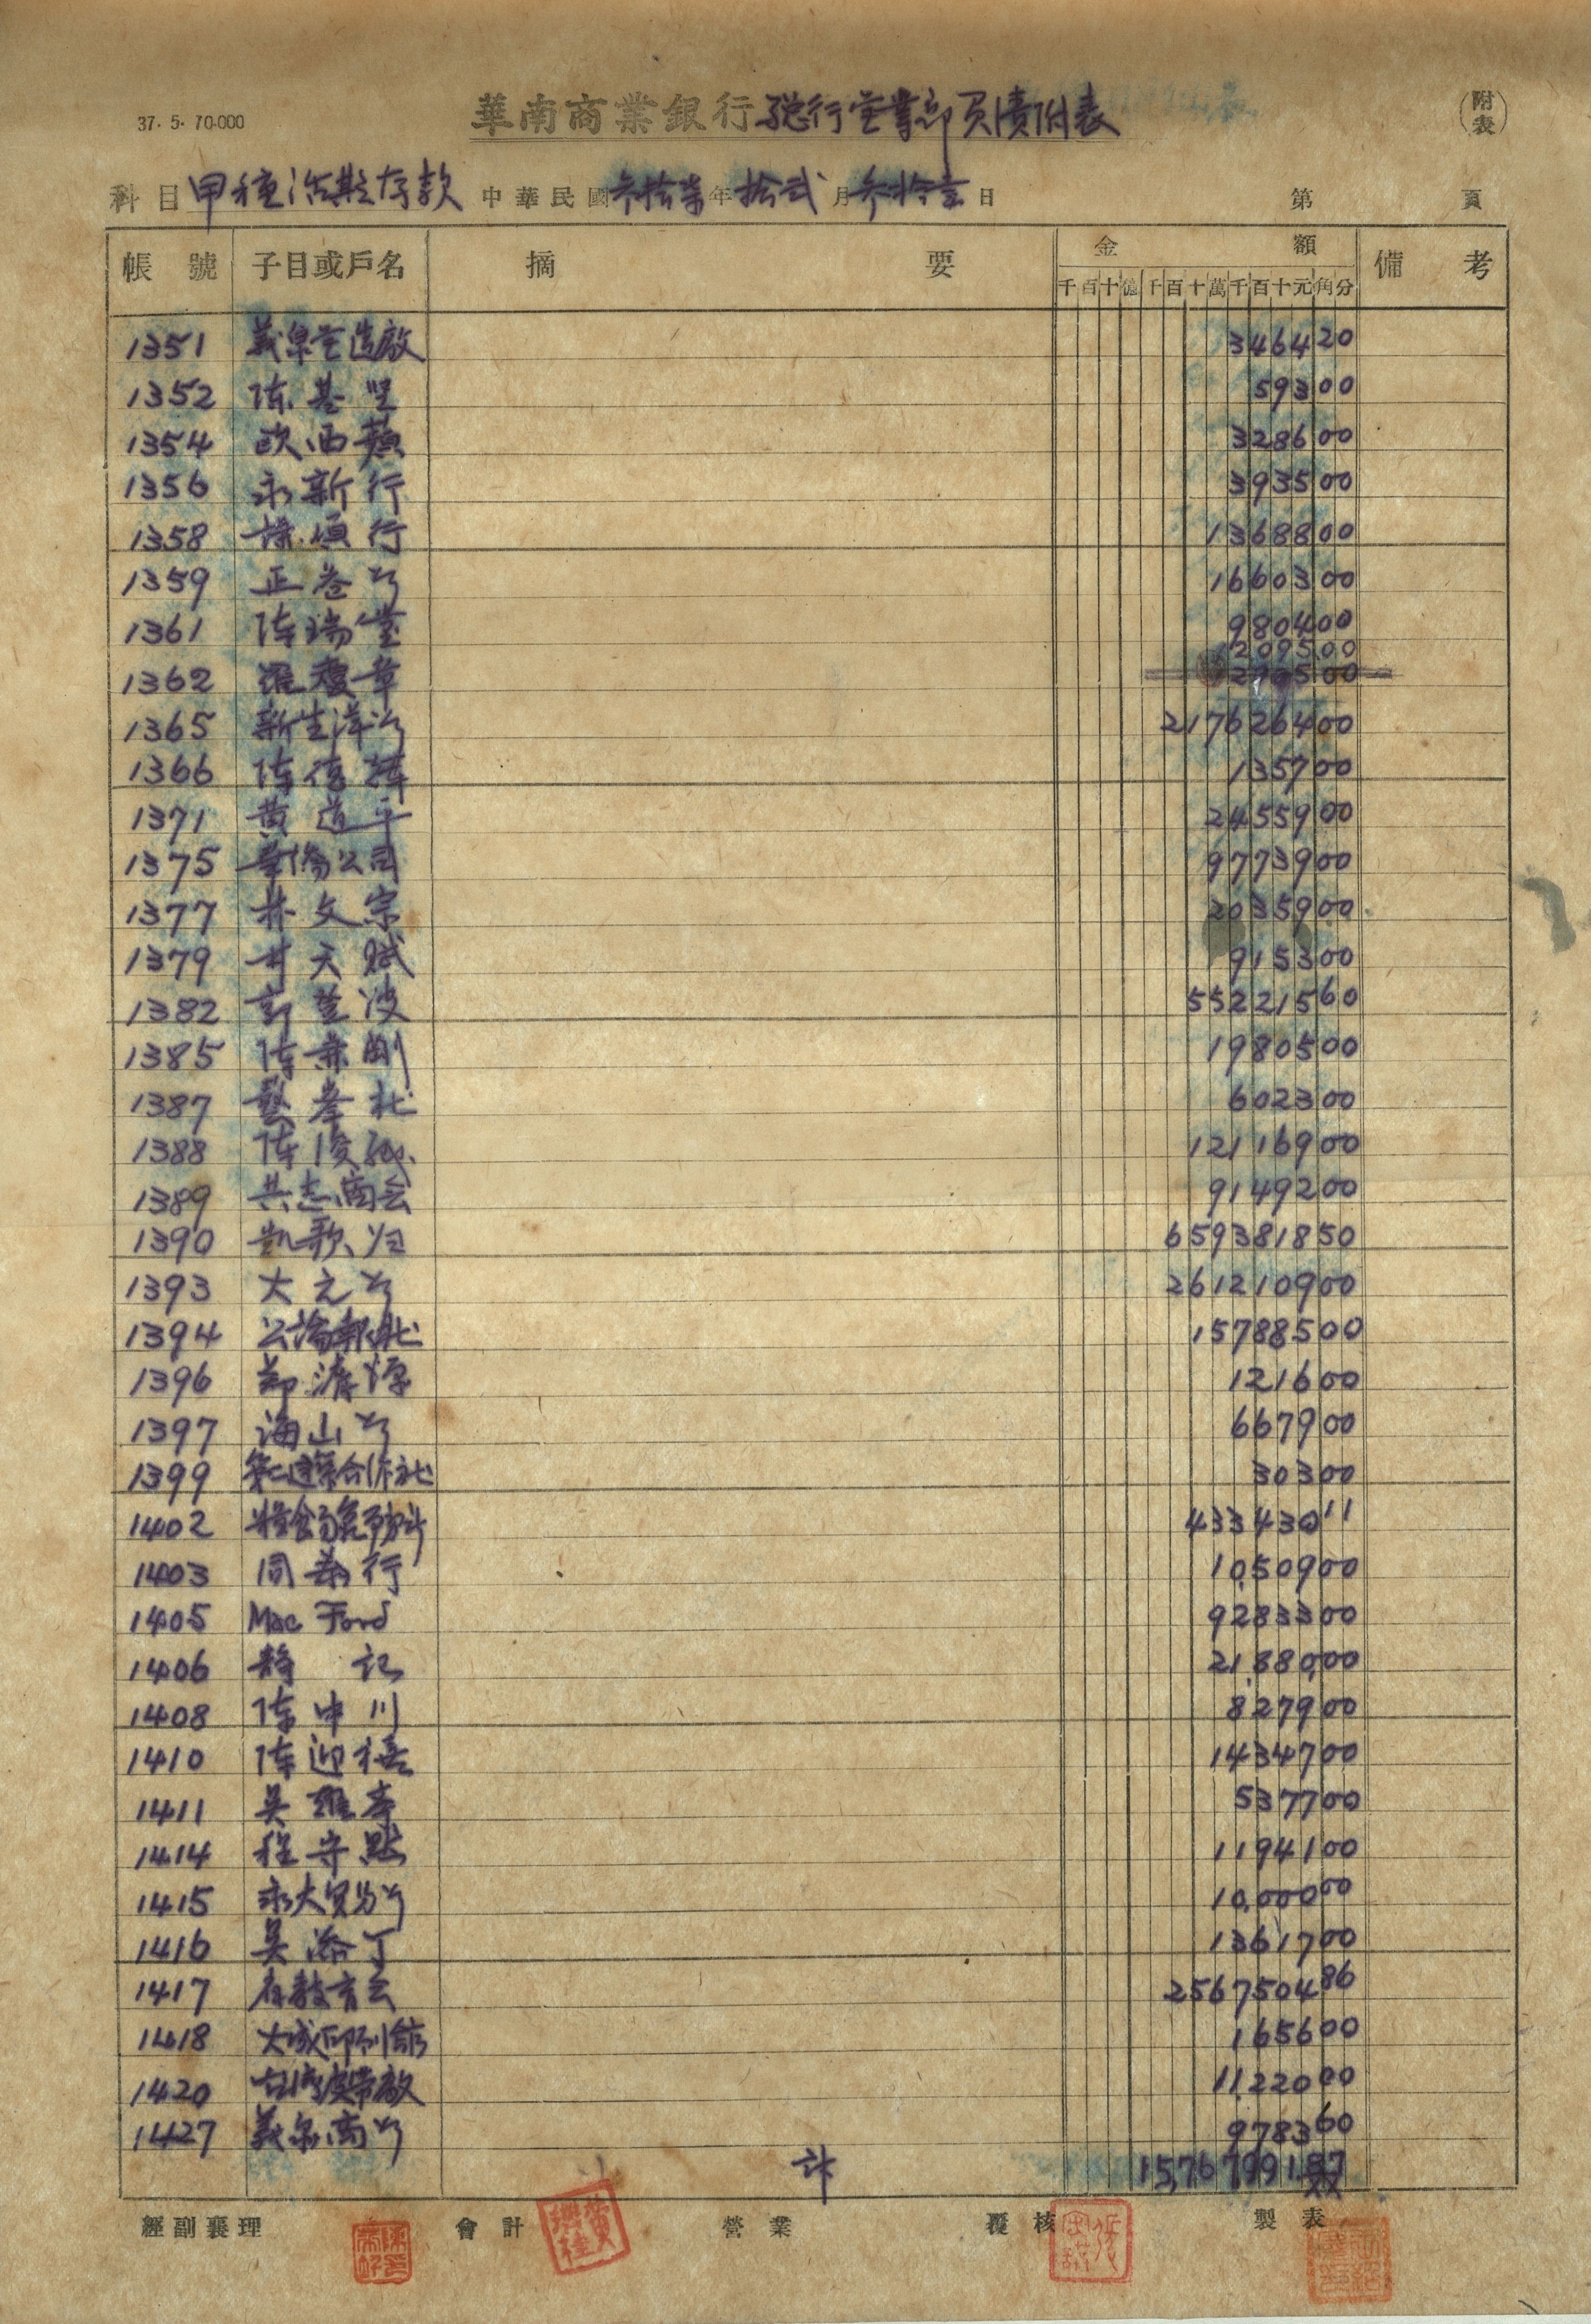 37. 5. 70.000
華南商業銀行總行營業部負債附表
(附表)
科目 甲種活期存款 中華民國叁拾柒年拾貳月叁拾壹日 第 頁
帳號 子目或戶名 摘要 金額 備考
千百十億千百十萬千百十元角分
1351 義泉釀造廠 346420
1352 陳基 59300
1354 欧西 328600
1356 永新行 393500
1358 謙順行 1368800
1359 正 行 1660300
1361 陳瑞 980400
209500
1362 羅慶章
1365 新生洋行 217626400
1366 陳信 135700
1371 黃道平 2455900
1375 華僑公司 9773900
1377 林文宗 2035900
1379 林天賦 915300
1382 郭 波 55221560
1385 陳 剛 1980500
1387 藝峯社 602300
1388 陳俊 12116900
1389 共志商会 9149200
1390 凱歌归 659381850
1393 大元行 261210900
1394 公論報社 15788500
1396 鄭濟源 121600
1397 海山行 667900
1399 第二建築合作社 30300
1402 糧食局 43343011
1403 同義行 1,050900
1405 Mac Ford 9283300
1406 靜記 21,880,00
1408 陳中川 827900
1410 陳迎禧 1434700
1411 吳 537700
1414 程守 1194100
1415 永大貿易行 10,00000
1416 吳添丁 1361700
1417 省教育会 256750486
1418 大成印刷館 165600
1420 台湾皮帶廠 11,22000
1427 義泉商行 978360
計 15,76799187
經副襄理 會計 營業 覆核 製表